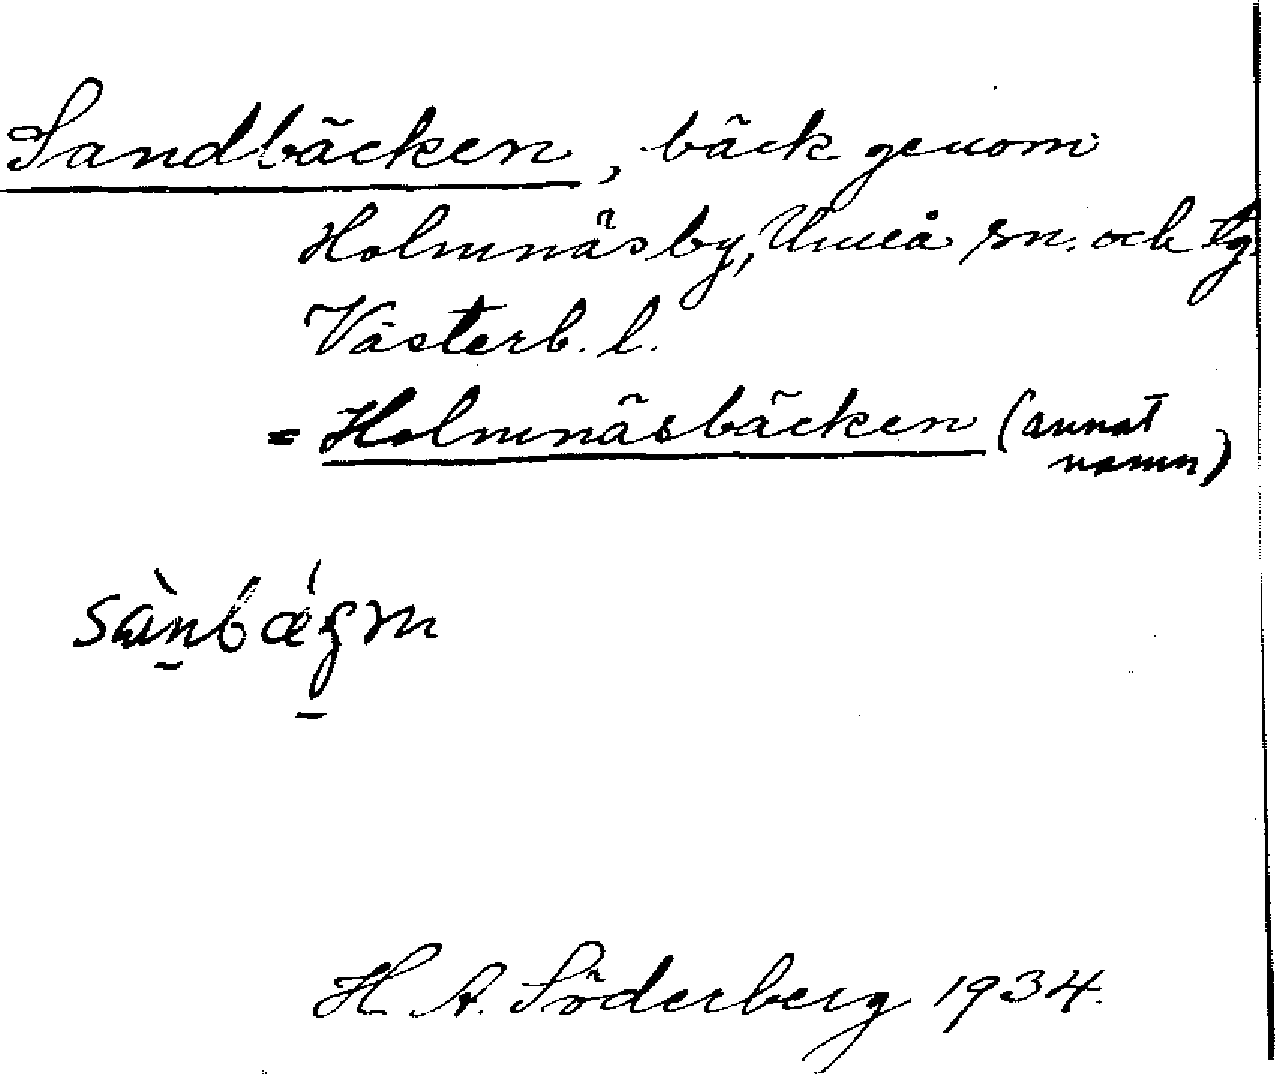 Sandbäcken, bäck genom
Holmnäs by, Umeå sn. och tg.
Västerb. l.
= Holmnäsbäcken (annat
namn)
H. A. Söderberg 1934.